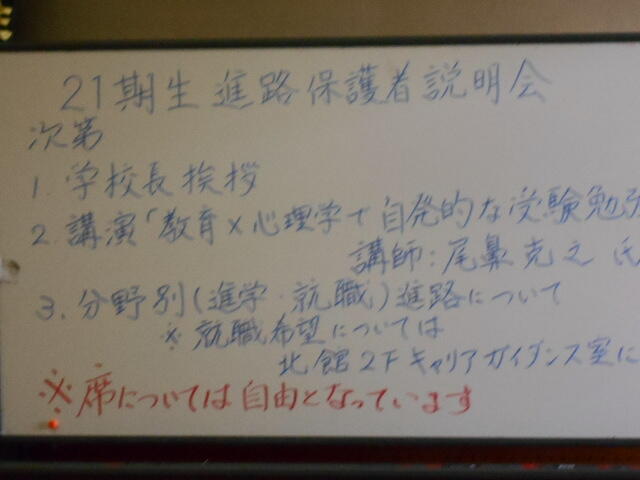 21期生 進路保護者説明会
次第
1. 学校長挨拶
2. 講演「教育×心理学で自発的な受験勉
講師：尾鼻克之 氏
3. 分野別(進学・就職)進路について
※ 就職希望については
北館2Fキャリアガイダンス室に
※席については自由となっています